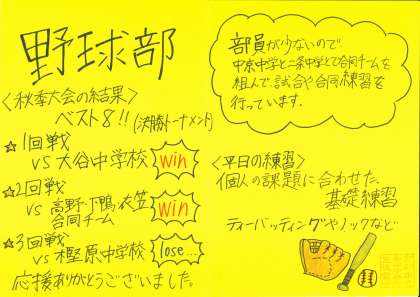 野球部
〈秋季大会の結果〉
ベスト8!!(決勝トーナメント)
☆1回戦
VS 大谷中学校 win
☆2回戦
VS 高野・下鴨・衣笠
合同チーム win
☆3回戦
VS 樫原中学校 lose...
応援ありがとうございました。
部員が少ないので
中京中学と二条中学とで合同チームを
組んで、試合や合同練習を
行っています。
〈平日の練習〉
個人の課題に合わせた、
基礎練習
ティーバッティングやノックなど